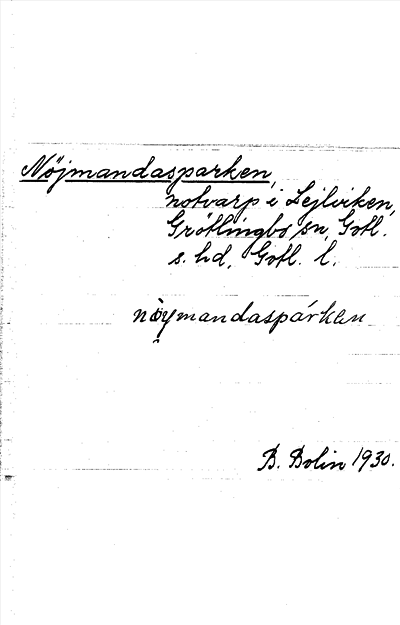 Nöjmandasparken,
notvarp i Lejviken,
Grötlingbo sn, Gotl.
s. hd, Gotl. l.
nöymandaspárken
B. Bolin 1930.